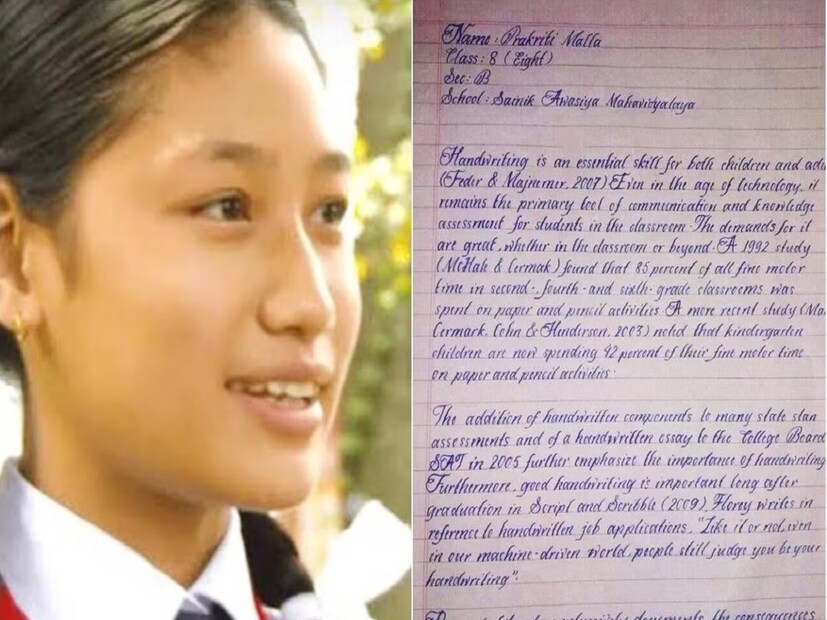 Name: Prakriti Malla
Class: 8 (Eight)
Sec: B
School: Sainik Awasiya Mahavidyalaya
Handwriting is an essential skill for both children and adu
(Feder & Majnemer, 2007) Even in the age of technology, it
remains the primary tool of communication and knowledge
assessment for students in the classroom. The demands for it
are great, whether in the classroom or beyond. A 1992 study
(McHale & Cermak) found that 85 percent of all fine motor
time in second-, fourth- and sixth-grade classrooms was
spent on paper and pencil activities. A more recent study (Ma
Cermark, Cohn & Henderson, 2003) noted that kindergarten
children are now spending 42 percent of their fine motor time
on paper and pencil activities.
The addition of handwritten components to many state stan
assessments and of a handwritten essay to the College Board
SAT in 2005 further emphasize the importance of handwriting
Furthermore, good handwriting is important long after
graduation in Script and Scribble (2009), Florey writes in
reference to handwritten job applications, "Like it or not, even
in our machine-driven world, people still judge you be your
handwriting".
the consequences